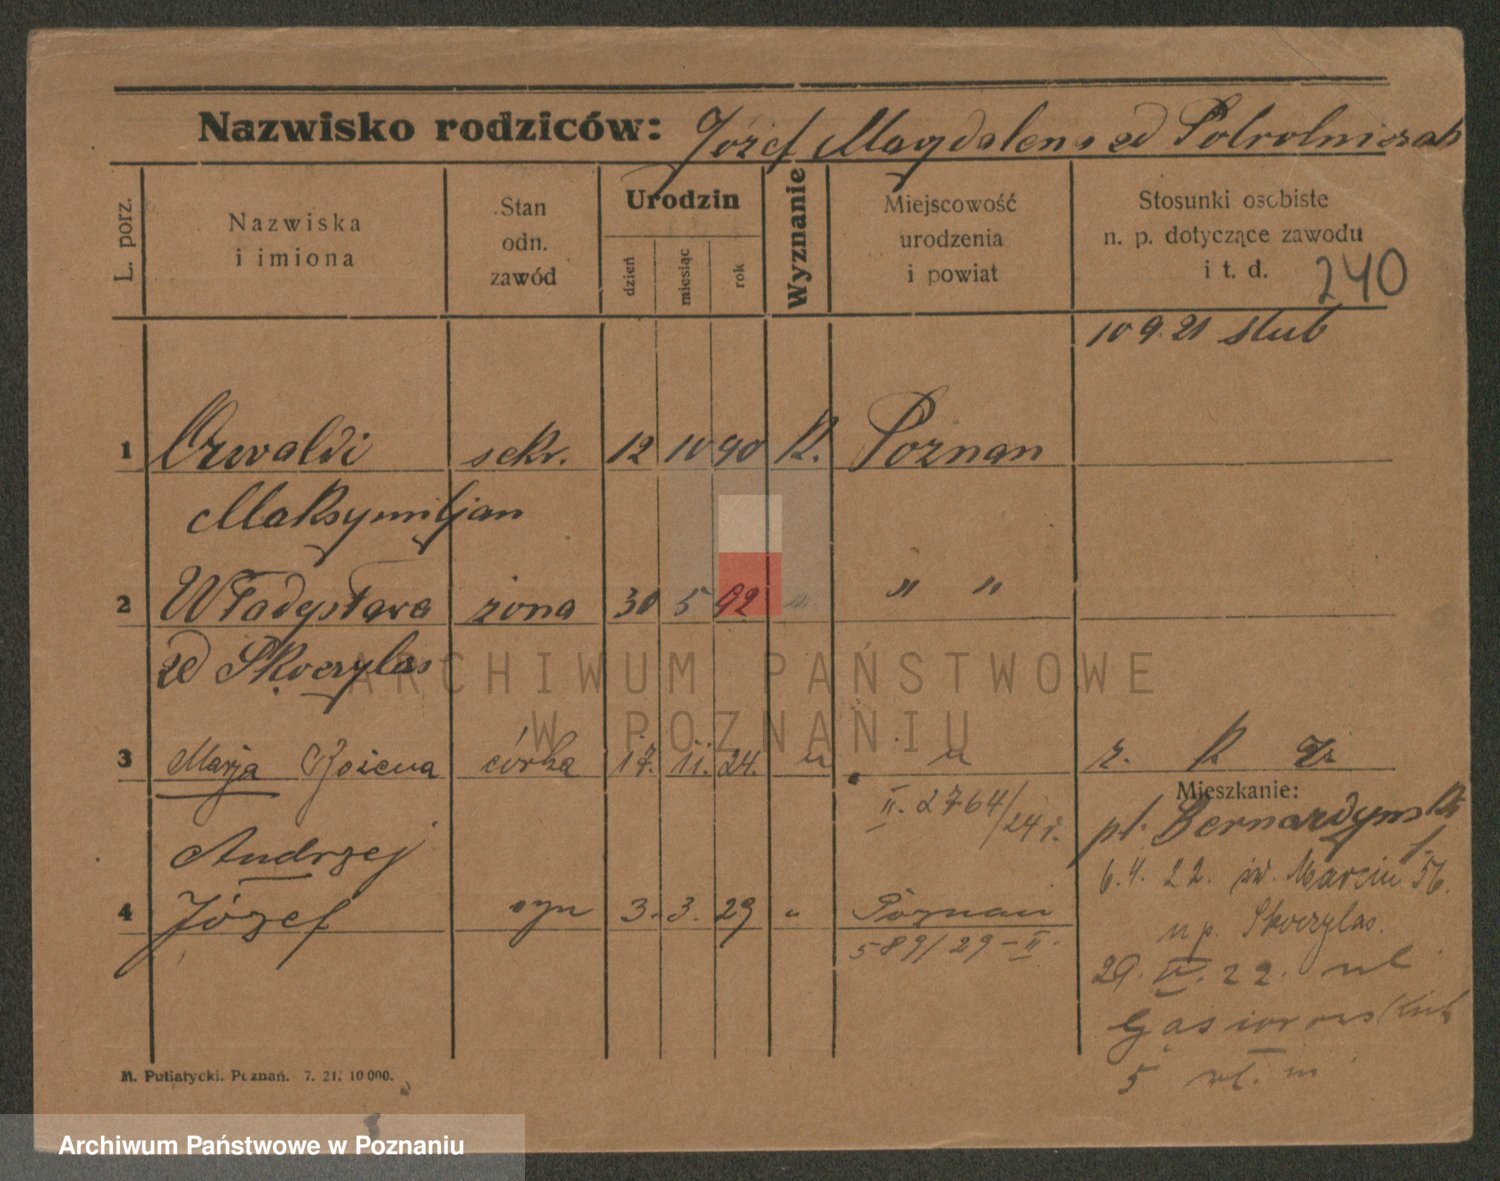 Nazwisko rodziców: Józef Magdalena zd Polrolniczak
L. porz.
Nazwiska
i imiona
Stan
odn.
zawód
Urodzin
dzień
miesiąc
rok
Wyznanie
Miejscowość
urodzenia
i powiat
Stosunki osobiste
n. p. dotyczące zawodu
i t. d.
240
10 9 21 slub
1 Czwaldi sekr. 12 10 90 k. Poznan
Maksymiljan
2 Władysława żona 30 5 92 " " "
zd Skoczylas
3 Marja Bożena córka 17. 11. 24. " "
II. 2764/24 r.
Andrzej
4 Józef syn 3. 3. 29 " Poznań
589/29-II.
r. k
Mieszkanie:
pl. Bernardyński
6.4.22. św. Marcin 56.
u p. Skoczylas.
29. IV. 22. ul
Gąsiorowskich
5 wł. m
M. Putiatycki. Poznań. 7. 21. 10 000.
ARCHIWUM PAŃSTWOWE
W POZNANIU
Archiwum Państwowe w Poznaniu